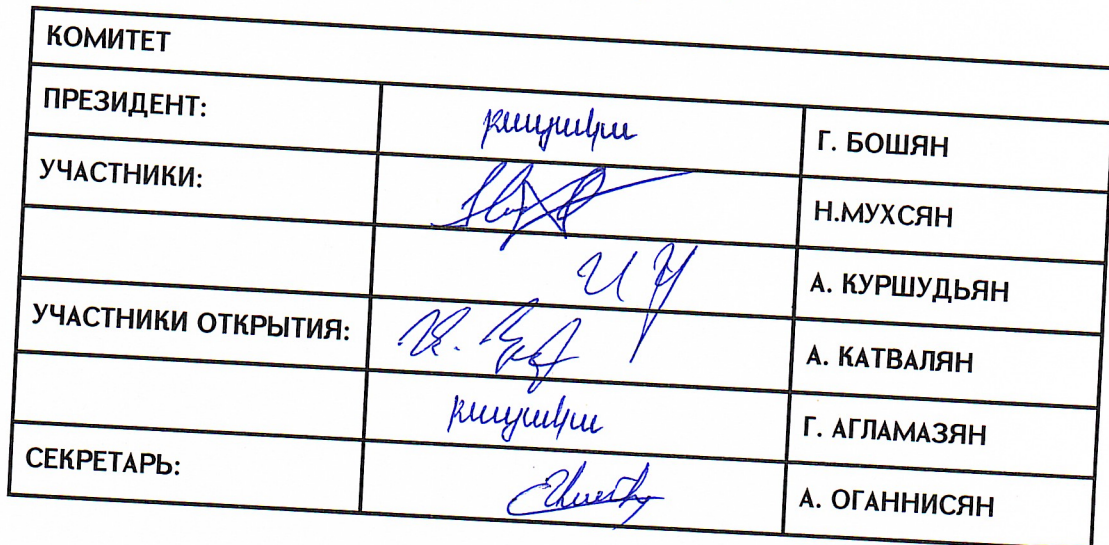 КОМИТЕТ
ПРЕЗИДЕНТ: բացակա Г. БОШЯН
УЧАСТНИКИ: Н.МУХСЯН
А. КУРШУДЬЯН
УЧАСТНИКИ ОТКРЫТИЯ: А. КАТВАЛЯН
բացակա Г. АГЛАМАЗЯН
СЕКРЕТАРЬ: А. ОГАННИСЯН